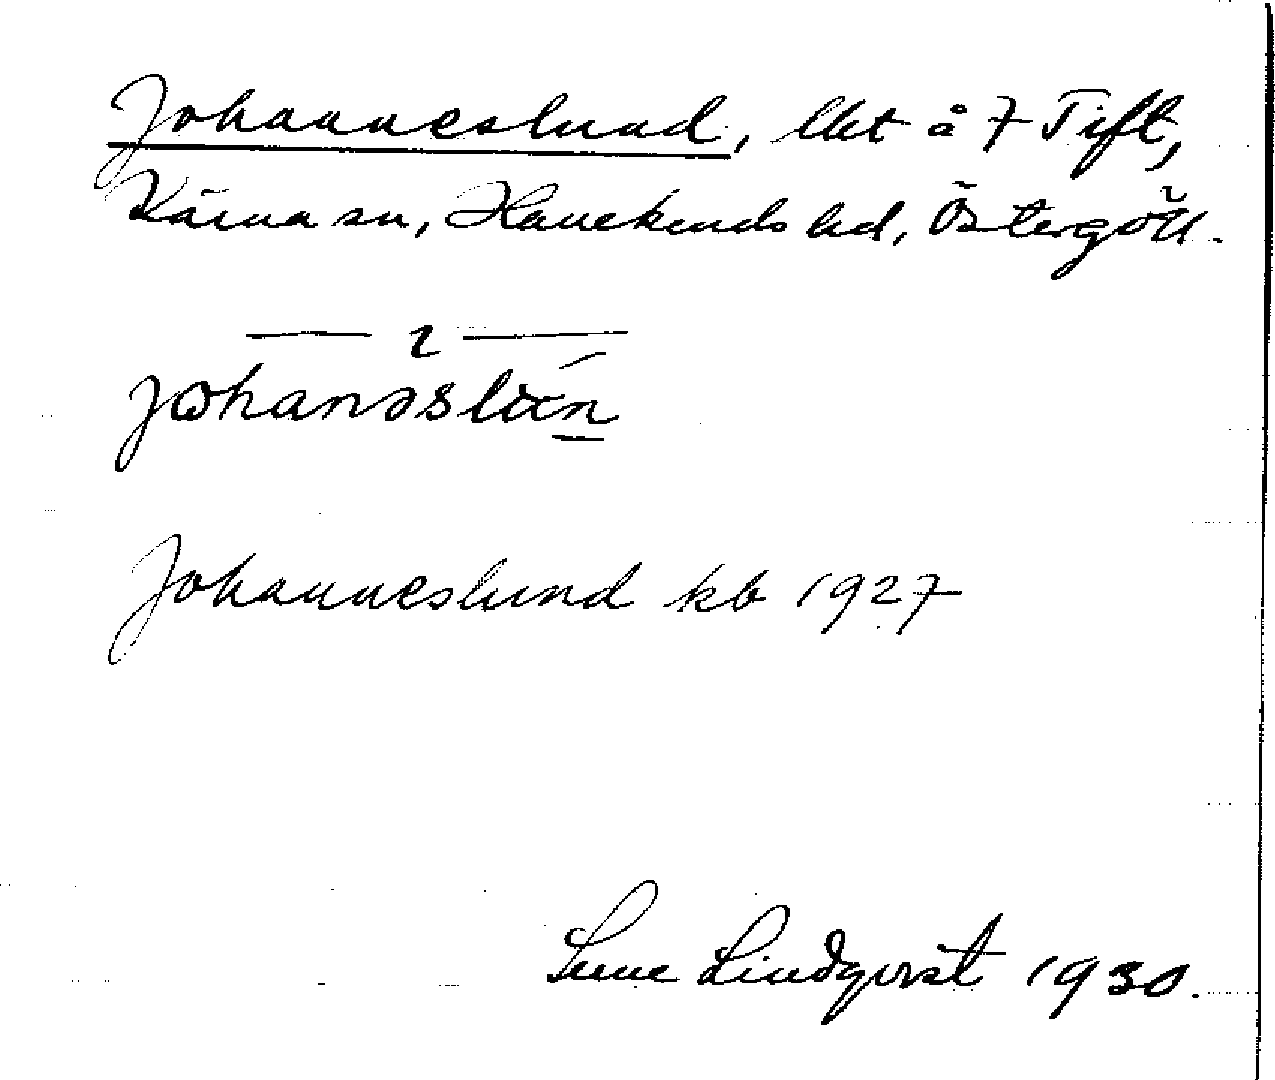 Johanneslund, lht å 7 Tift,
Kärna sn, Hanekinds hd, Östergötl.
— 2 —
Johanneslund kb 1927
Sune Lindqvist 1930.